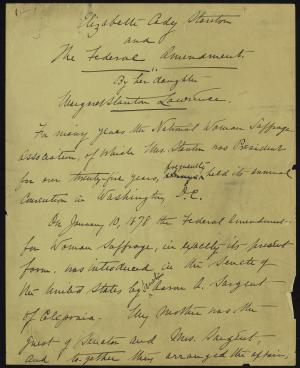 Elizabeth Cady Stanton
and
The Federal Amendment.
By her daughter
Margaret Stanton Lawrence.
For many years the National Woman Suffrage
Association, of which Mrs. Stanton was President
for over twenty-five years, frequently held its annual
Convention in Washington, D.C.
On January 10, 1878 the Federal Amendment
for Woman Suffrage, in exactly its present
form, was introduced in the Senate of
the United States by Senator Aaron A. Sargent
of California. My mother was the
guest of Senator and Mrs. Sargent,
and together they arranged the affair,